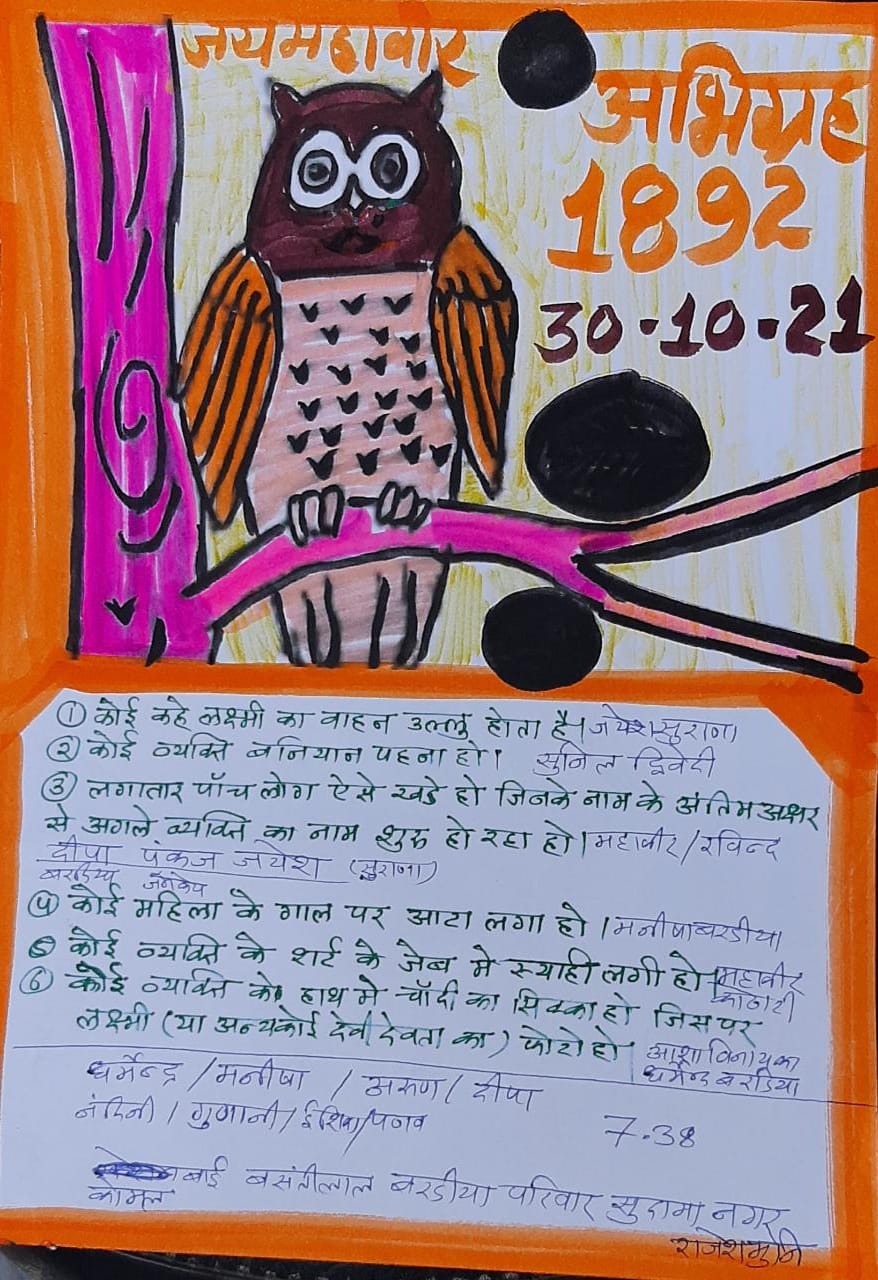 जय महावीर
अभिग्रह
1892
30-10-21
① कोई कहे लक्ष्मी का वाहन उल्लु होता है। जयेश सुराणा
② कोई व्यक्ति बनियान पहना हो। सुनिल द्विवेदी
③ लगातार पाँच लोग ऐसे खडे हो जिनके नाम के अंतिम अक्षर
से अगले व्यक्ति का नाम शुरू हो रहा हो। महावीर/रविन्द
दीपा पंकज जयेश (सुराणा)
बरडिया
④ कोई महिला के गाल पर आटा लगा हो। मनीषा बरडीया
⑤ कोई व्यक्ति के शर्ट के जेब मे स्याही लगी हो। महावीर
कोठारी
⑥ कोई व्यक्ति के हाथ मे चाँदी का सिक्का हो जिस पर
लक्ष्मी (या अन्य कोई देवी देवता का) फोटो हो। आशा विनायका
धर्मेन्द्र बरडिया
धर्मेन्द्र /मनीषा / अरुण/ दीपा
नंदिनी / गुणानी/ईशिका/पणव
7.38
बाई बसंतीलाल बरडीया परिवार सुदामा नगर
कोमल
राजेशमुनि